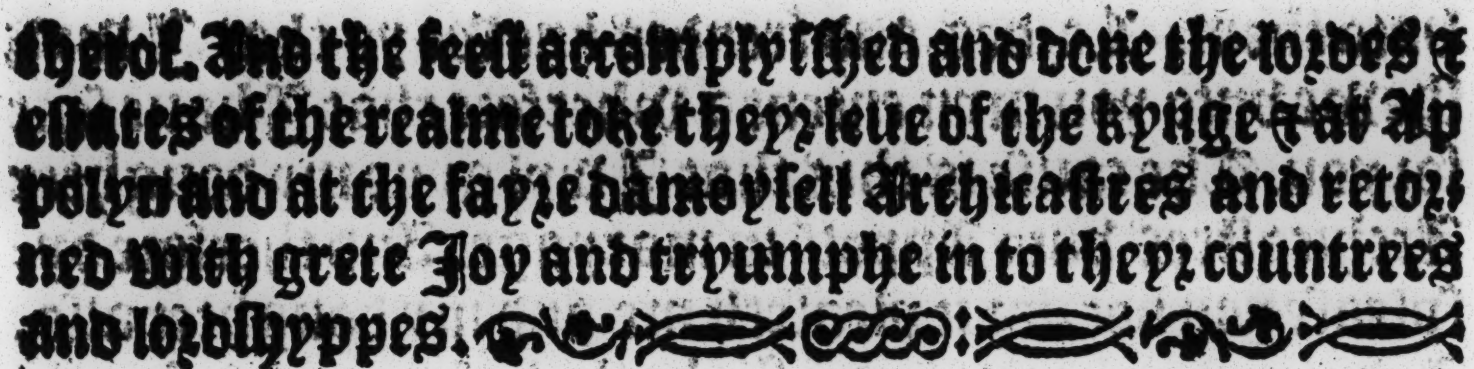 therof. And the feest accomplysshed and done the lordes &
estates of the realme toke theyr leue of the kynge & at Ap
polyn and at the fayre damoysell Archicastres and retor⸗
ned with grete Joy and tryumphe in to theyr countrees
and lordshyppes.